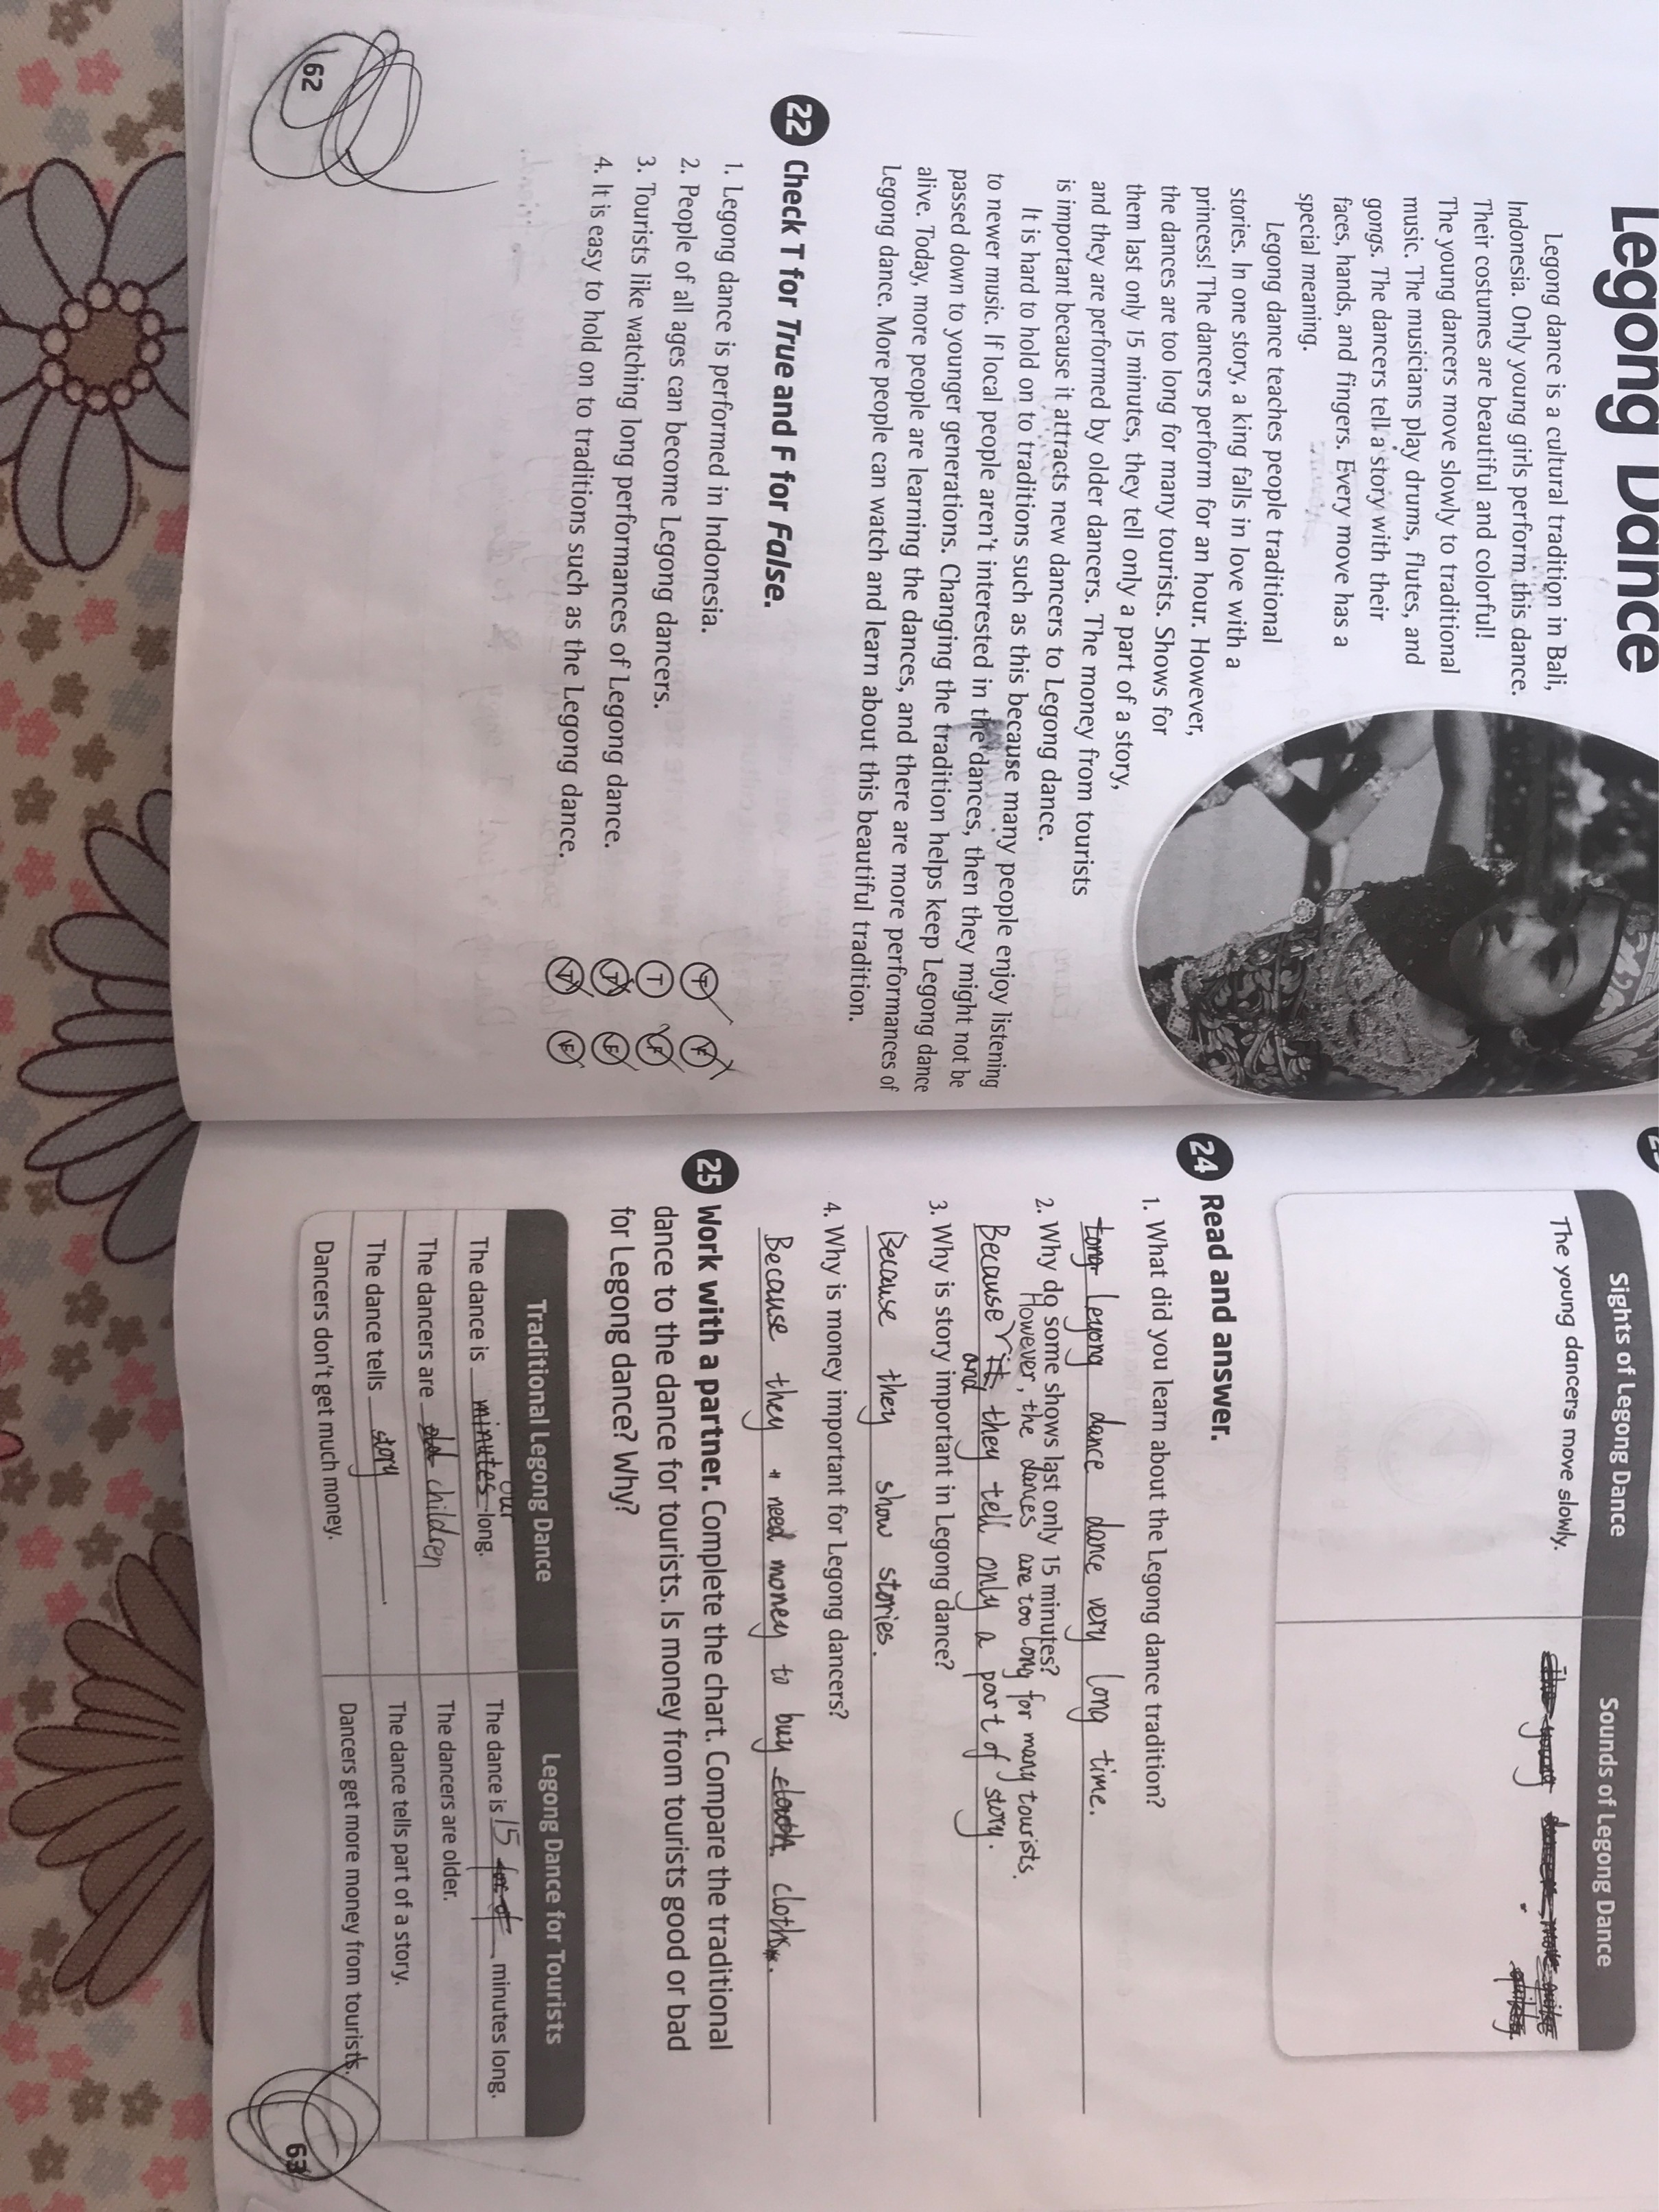 Legong Dance
Legong dance is a cultural tradition in Bali,
Indonesia. Only young girls perform this dance.
Their costumes are beautiful and colorful!
The young dancers move slowly to traditional
music. The musicians play drums, flutes, and
gongs. The dancers tell a story with their
faces, hands, and fingers. Every move has a
special meaning.
Legong dance teaches people traditional
stories. In one story, a king falls in love with a
princess! The dancers perform for an hour. However,
the dances are too long for many tourists. Shows for
them last only 15 minutes, they tell only a part of a story,
and they are performed by older dancers. The money from tourists
is important because it attracts new dancers to Legong dance.
It is hard to hold on to traditions such as this because many people enjoy listening
to newer music. If local people aren't interested in the dances, then they might not be
passed down to younger generations. Changing the tradition helps keep Legong dance
alive. Today, more people are learning the dances, and there are more performances of
Legong dance. More people can watch and learn about this beautiful tradition.
22 Check T for True and F for False.
1. Legong dance is performed in Indonesia. T F
2. People of all ages can become Legong dancers. T F
3. Tourists like watching long performances of Legong dance. T F
4. It is easy to hold on to traditions such as the Legong dance. T F
62
Sights of Legong Dance Sounds of Legong Dance
The young dancers move slowly.
24 Read and answer.
1. What did you learn about the Legong dance tradition?
Legong dance dance very long time.
2. Why do some shows last only 15 minutes?
However, the dances are too long for many tourists.
Because it, they tell only a part of story.
and
3. Why is story important in Legong dance?
Because they show stories.
4. Why is money important for Legong dancers?
Because they need money to buy cloths.
25 Work with a partner. Complete the chart. Compare the traditional
dance to the dance for tourists. Is money from tourists good or bad
for Legong dance? Why?
Traditional Legong Dance Legong Dance for Tourists
our
The dance is minutes long. The dance is 15 minutes long.
The dancers are old children The dancers are older.
The dance tells story. The dance tells part of a story.
Dancers don't get much money. Dancers get more money from tourists.
63